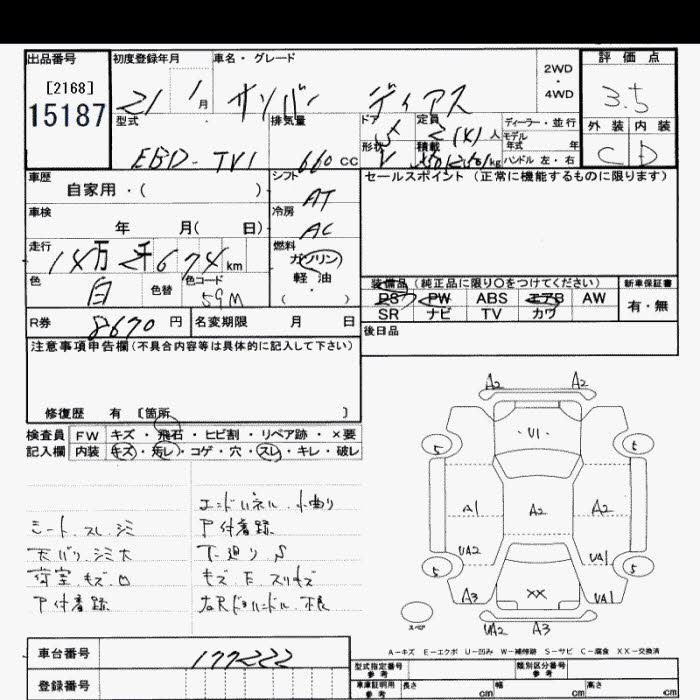 出品番号
[2168]
15187
初度登録年月
21 1月
車名・グレード
サンバー ディアス
2WD
・
4WD
評価点
3.5
外装 内装
C D
型式
EBD-TV1
排気量
660 cc
ドア
5
形状
V
定員
2(4)人
積載
kg
ディーラー・並行
モデル
年式 年
ハンドル 左・右
車歴
自家用・( )
シフト
AT
セールスポイント (正常に機能するものに限ります)
車検
年 月( 日)
冷房
AC
走行
14万 674km
燃料
ガソリン
軽油
( ・ )
色
白
色替
色コード
59M
装備品 (純正品に限り○をつけてください)
PS PW ABS エアB AW
SR ナビ TV カワ
新車保証書
有・無
R券
8670 円
名変期限 月 日
後日品
注意事項申告欄(不具合内容等は具体的に記入して下さい)
修復歴 有 〔箇所 〕
検査員
記入欄
FW キズ・飛石・ヒビ割・リペア跡・×要
内装 キズ・汚レ・コゲ・穴・スレ・キレ・破レ
シート スレ シミ
天バリ シミ大
荷室 キズ 凹
P付着跡
エンドパネル 小曲り
P付着跡
下廻り S
キズ E スリキズ
右Rドアハンドル
A2 A2
U1
5 5
A1 A2 A2
UA2 UA1
5 5
A3 XX UA1
スペア
UA2 A3
A－キズ E－エクボ U－凹み W－補修跡 S－サビ C－腐食 XX－交換済
車台番号
177222
登録番号
型式指定番号
参考
類別区分番号
参考
車庫証明用
参考
長さ cm
幅 cm
高さ cm